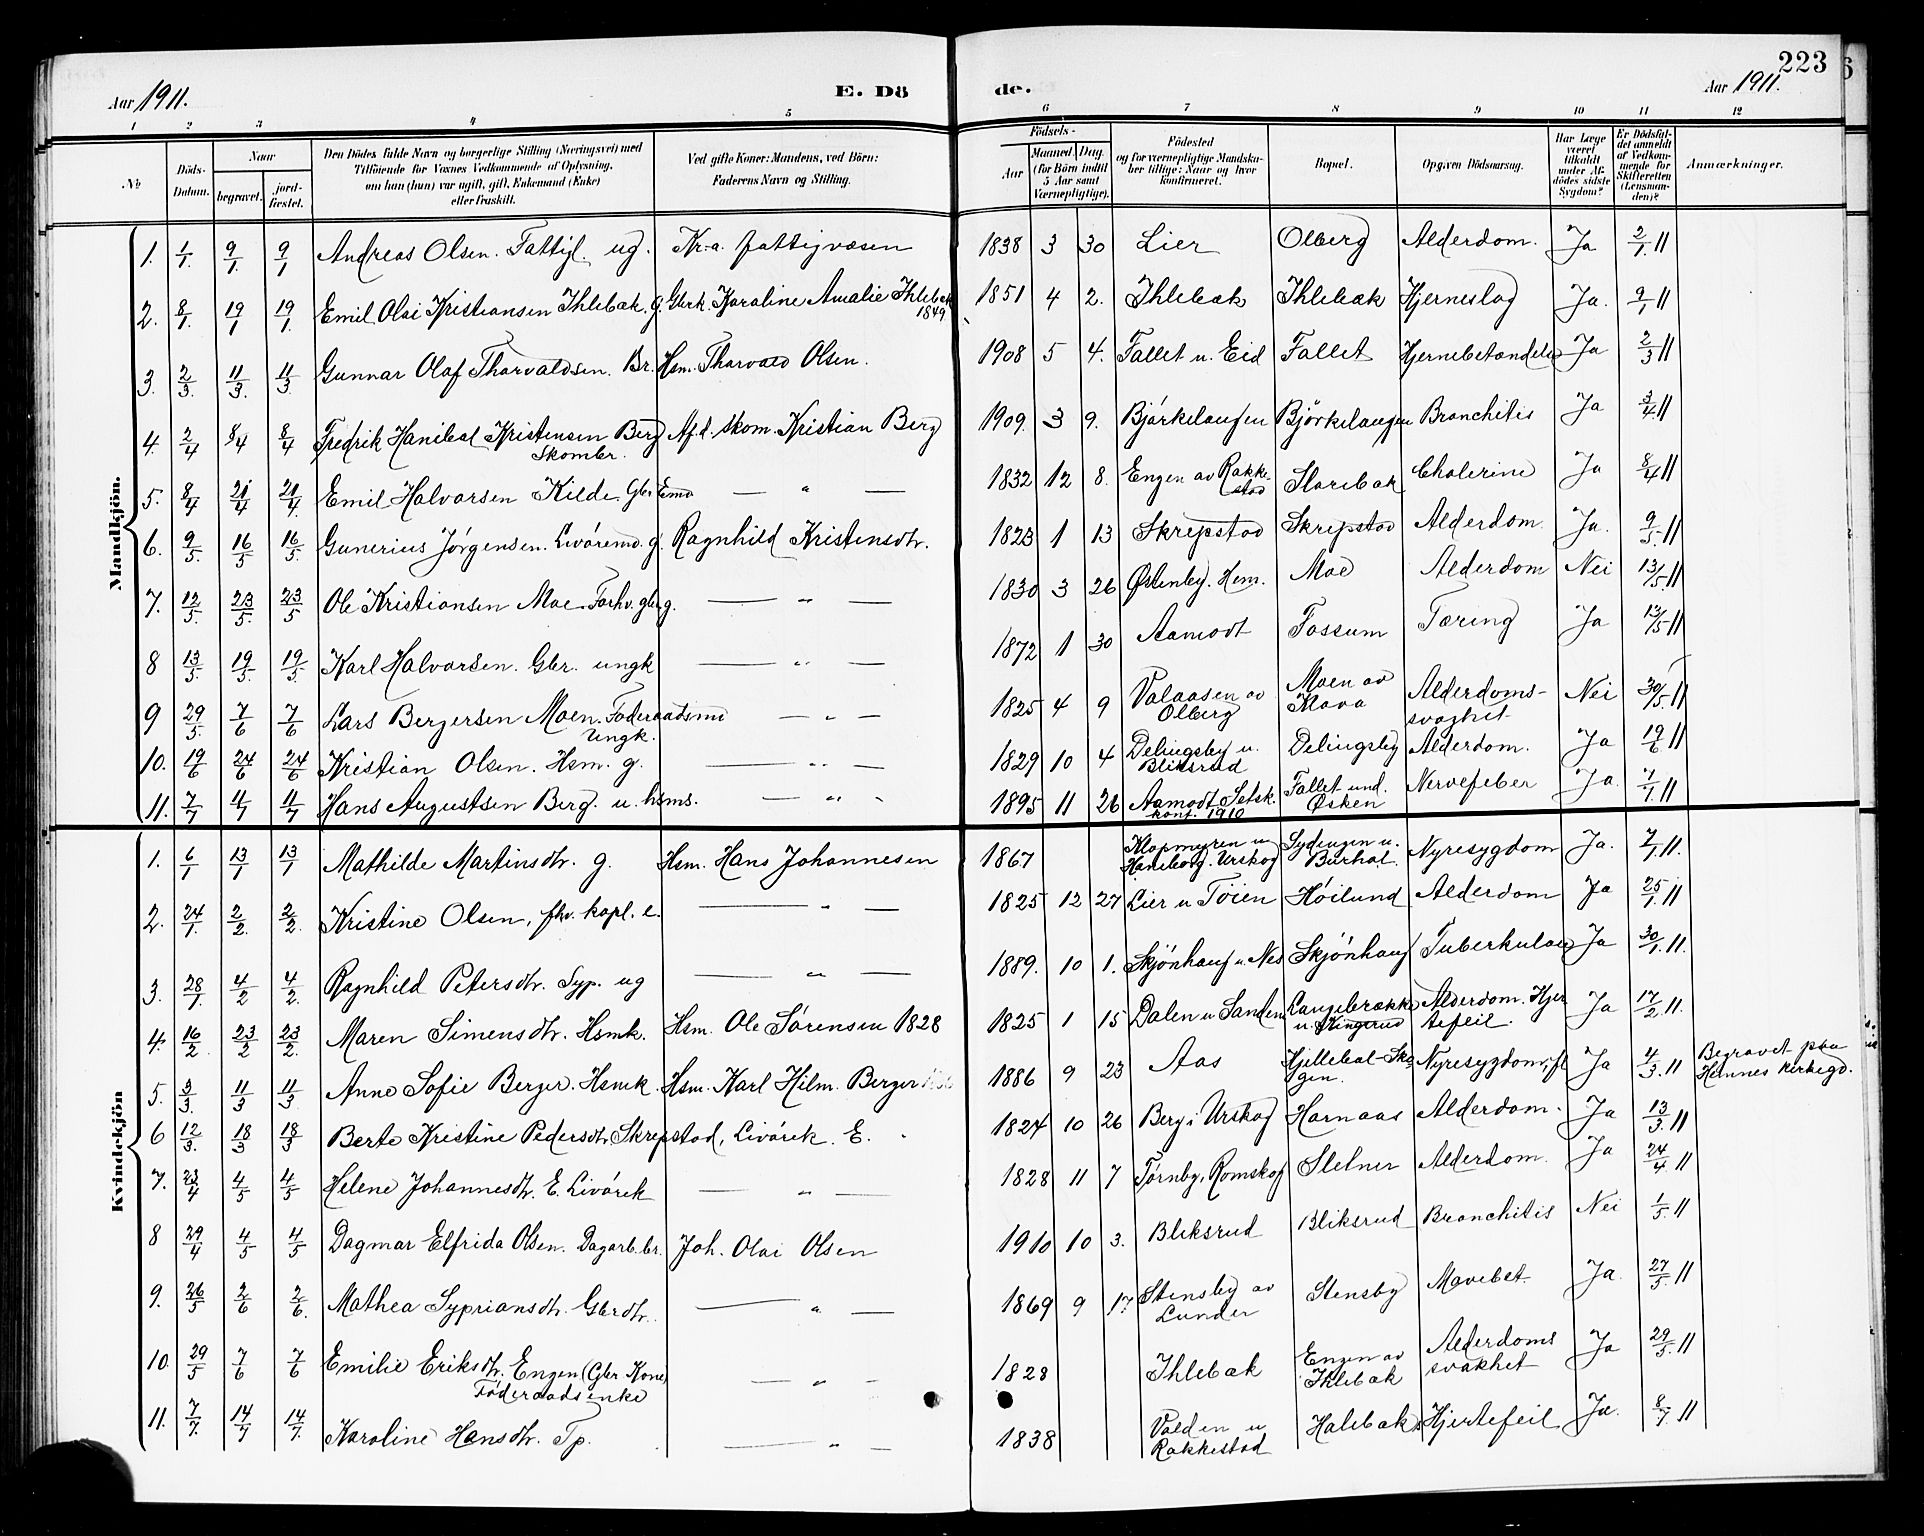 223
Aar 1911.
E. Dö
de.
Aar 1911.
1 2 3 4 5 6 7 8 9 10 11 12
№
Döds-Datum.
Naar
begravet.
jord-fæstet.
Den Dödes fulde Navn og borgerlige Stilling (Næringsvei) med
Tilföiende for Voxnes Vedkommende af Oplysning,
om han (hun) var ugift, gift, Enkemand (Enke)
eller fraskilt.
Ved gifte Koner: Mandens, ved Börn:
Faderens Navn og Stilling.
Födsels-
Aar
Maaned. Dag.
(for Börn indtil
5 Aar samt
Værnepligtige).
Födested
og for værnepligtige Mandska-
ber tillige: Naar og hvor
konfirmeret.
Bopæl.
Opgiven Dödsaarsag.
Har Læge
været
tilkaldt
under Af-
dödes sidste
Sygdom?
Er Dödsfal-
det anmeldt
af Vedkom-
mende for
Skifteretten
(Lensman-
den)?
Anmærkninger.
Mandkjön.
1. 1/1. 9/1. 9/1 Andreas Olsen. Fattigl. ug. Kr.a. fattigvæsen 1838 3 30 Lier Olberg Alderdom. Ja 2/1. 11
2. 8/1. 19/1 19/1. Emil Olai Kristiansen Ihlebæk. g. Gbrk. Karoline Amalie Ihlebæk 1849 1851 4 2. Ihlebæk Ihlebæk Hjerneslag Ja. 9/1 11
3. 2/3. 11/3. 11/3 Gunnar Olaf Thorvaldsen. Br. Hsm. Thorvald Olsen. 1908 5 4. Fallet u. Eid Fallet Hjernebetændelse Ja 2/3 11
4. 2/4 8/4 8/4 Fredrik Hanibal Kristensen Berg Skombr. Afd. skom. Kristian Berg 1909. 3 9. Björkelangen Björkelangen Bronchitis Ja 3/4. 11
5. 8/4 21/4 21/4. Emil Halvorsen Kilde. Gbr. Emd — " — 1832 12 8. Engen av Rakkestad Slorebak Cholerine Ja 8/4 11
6. 9/5. 16/5 16/5. Gunerius Jörgensen. Livöremd. g. Ragnhild Kristensdtr. 1823 1 13 Skrepstad Skrepstad Alderdom. Ja. 9/5. 11
7. 12/5. 23/5. 23/5 Ole Kristiansen Moe. Forhv. gbr g. — " — 1830 3 26 Østenby. Hem. Moe Alderdom Nei 13/5. 11
8 13/5. 19/5. 19/5. Karl Halvorsen. Gbr. ungk — " — 1872 1 30 Aamodt Fossum Tæring Ja 13/5 11
9 29/5. 7/6 7/6 Lars Bergersen Moen. Föderaadsmd Ungk. — " — 1825 4 9 Valaasen av Olberg Moen av Kava Alderdoms-svaghet Nei 30/5. 11
10. 19/6 24/6 24/6 Kristian Olsen. Hsm. g. — " — 1829 10 4 Delingsby u. Bliksrud Delingsby Alderdom. Ja 19/6 11
11. 7/7 11/7 11/7 Hans Augustsen Berg. u. hsms. — " — 1895 11 26 Aamodt Setsk. konf. 1910 Fallet und. Øsken Nervefeber Ja. 7/7. 11
Kvindekjön
1. 6/1 13/1 13/1 Mathilde Martinsdtr. g. Hsm. Hans Johannesen 1867 Klopmyren u. Haneborg. Urskog Sydengen u. Burhol. Nyresygdom Ja. 7/1. 11.
2. 24/1. 2/2. 2/2. Kristine Olsen, fhv. kapl. e. — " — 1825 12 27 Lier u Töien Höilund Alderdom Ja 25/1. 11
3. 28/1. 4/2 4/2. Ragnhild Petersdtr. Syp. ug — " — 1889. 10 1. Skjönhaug u. Nes Skjönhaug Tuberkulose Ja 30/1. 11.
4. 16/2 23/2 23/2. Maren Simensdtr. Hsmk. Hsm. Ole Sörensen 1828 1825 1 15 Dalen u Sanden Langebrække u. Kingerud Alderdom. Hjertefeil. Ja 17/2 11.
5. 3/3. 11/3 11/3 Anne Sofie Berger. Hsmk. Hsm. Karl Hilm. Berger 1886 9 23 Aas Hjellebøl Skogen. Nyresygdom, Ja 4/3. 11 Begravet paa Hemnes kirkegd.
6 12/3. 18/3 18/3 Berte Kristine Pedersdtr. Skrepstad, Livörek. E. 1824 10 26 Berg i Urskog Harnaas Alderdom. Ja 13/3. 11
7. 23/4 4/5 4/5 Helene Johannesdtr. E. Livörek — " — 1828 11 7 Törnby i Romskog Sletner Alderdom. Ja 24/4. 11
8 29/4 4/5 4/5 Dagmar Elfrida Olsen. Dagarb. br. Joh. Olai Olsen 1910 10 3. Bliksrud Bliksrud Bronchitis Nei 1/5. 11
9. 26/5 2/6 2/6. Mathea Sypriansdtr. Gbrdtr. — " — 1869 9 17 Stensby av Lunder Stensby Mavebet. Ja. 27/5. 11
10. 29/5 7/6 7/6 Emilie Eriksdtr. Engen (Gbr Kone) Föderaadsenke — " — 1828 Ihlebæk Engen av Ihlebæk Alderdoms svakhet Ja 29/5. 11
11. 7/7. 14/7 14/7. Karoline Hansdtr. Tp. — " — 1838 Valden u Rakkestad Halebæk Hjertefeil Ja. 8/7. 11